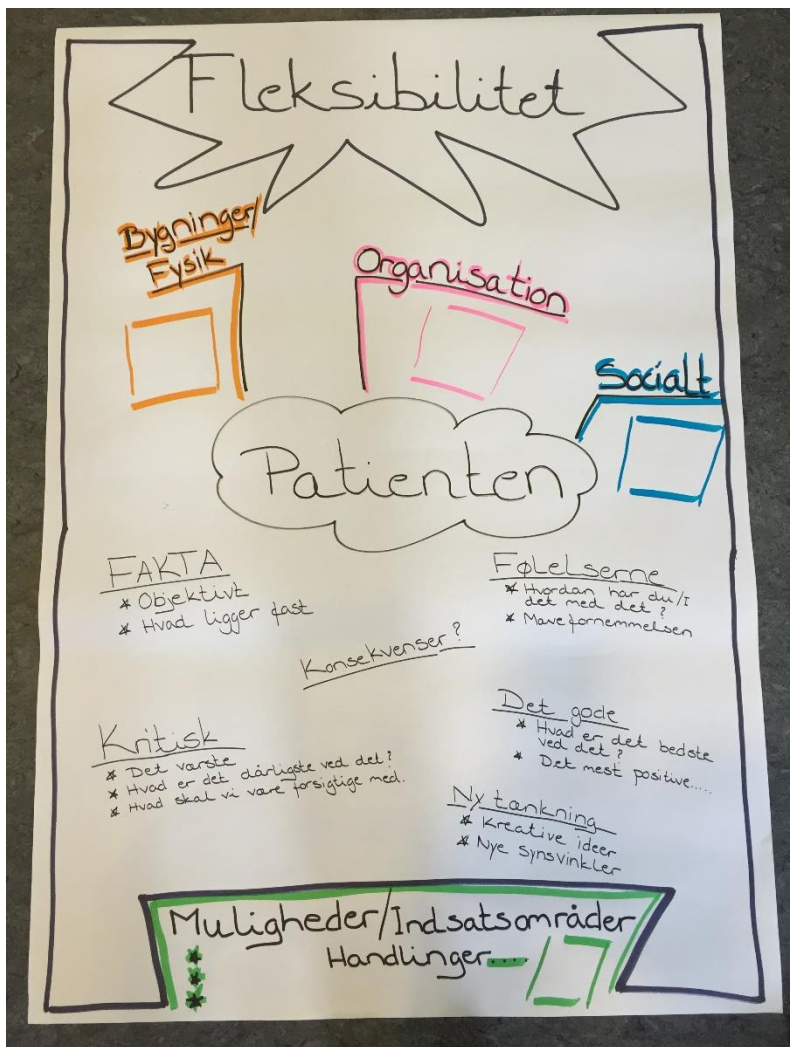 Fleksibilitet
Bygninger/
Fysik
Organisation
Socialt
Patienten
FAKTA
* Objektivt
* Hvad ligger fast
Følelserne
* Hvordan har du/I
det med det?
* Mavefornemmelsen
Konsekvenser?
Kritisk
* Det værste
* Hvad er det dårligste ved det?
* Hvad skal vi være forsigtige med.
Det gode
* Hvad er det bedste
ved det?
* Det mest positive.....
Ny tænkning
* Kreative ideer
* Nye synsvinkler
Muligheder/Indsatsområder
Handlinger....
*
*
*